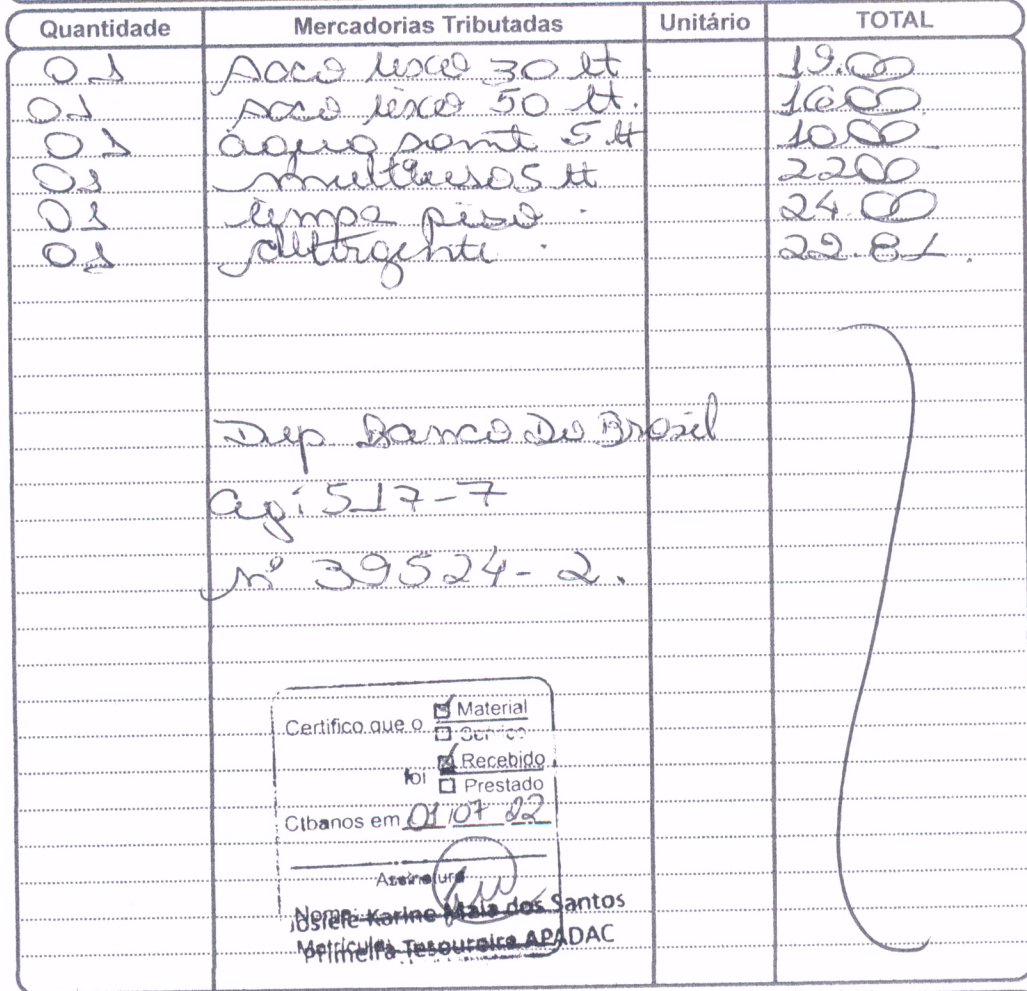 Quantidade Mercadorias Tributadas Unitário TOTAL
01 saco lixo 30 lt 19.00
01 saco lixo 50 lt. 16.00
01 agua sanit 5 lt 10.00
01 multiuso 5 lt 22.00
01 limpa piso. 24.00
01 detergente. 22.81.
Dep Banco Do Brasil
ag: 517-7
nº 39524-2.
Certifico que o Material
Serviço
foi Recebido
Prestado
Ctbanos em 01/07 22
Assinatura
Nome:
Josiele Karine Maia dos Santos
Matrícula
Primeira Tesoureira APADAC